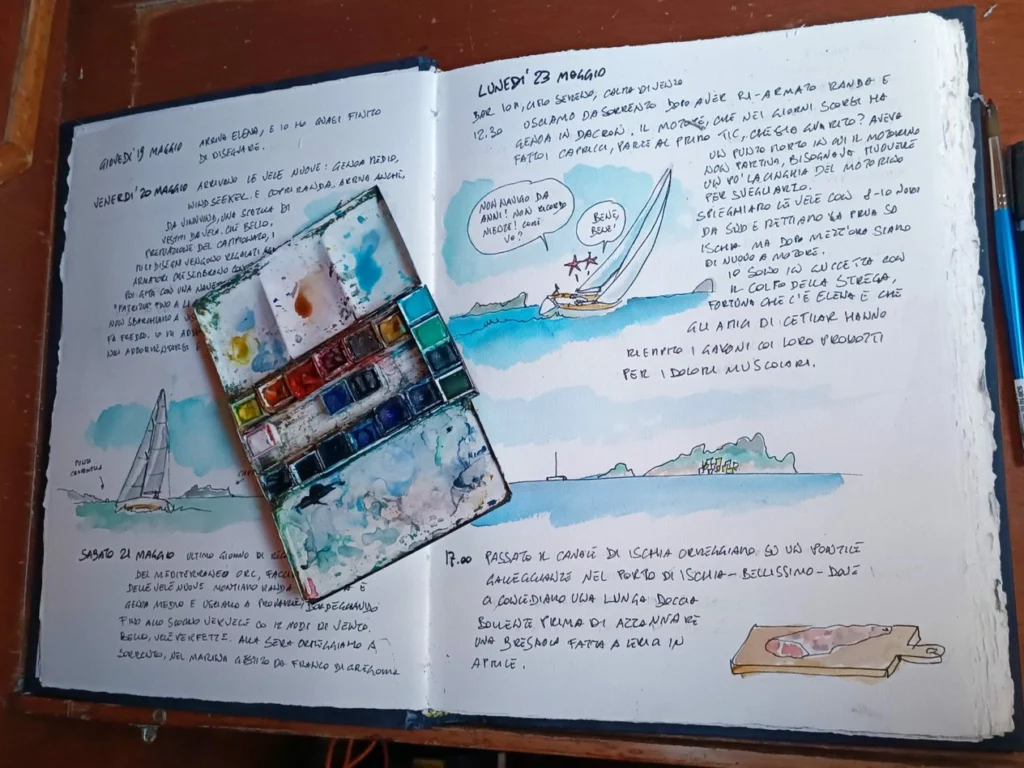 GIOVEDI' 19 MAGGIO ARRIVA ELENA, E IO HO QUASI FINITO
DI DISEGNARE.
VENERDI' 20 MAGGIO ARRIVANO LE VELE NUOVE: GENOA MEDIO,
WINDSEEKER E COPRI RANDA. ARRIVA ANCHE,
DA UNA SCATOLA DI
VESTITI DA VELA, CHE BELLO.
PREPARAZIONE DEL CAMPIONATO, I
MIEI DISEGNI VENGONO REGALATI
ARMATORI CHE SEMBRANO
POI GITA CON UNA
FINO A
NON SBARCHIAMO A
FA FREDDO.
PUNTA
CAMPANELLA
SABATO 21 MAGGIO ULTIMO GIORNO DI
DEL MEDITERRANEO ORC,
DELLE VELE NUOVE MONTIAMO RANDA E
GENOA MEDIO E USCIAMO A PROVARLE, BORDEGGIANDO
FINO ALLO SCOGLIO VERVECE CO 12 NODI DI VENTO.
BELLO, VELE PERFETTE. ALLA SERA ORMEGGIAMO A
SORRENTO, NEL MARINA GESTITO DA FRANCO DI GREGORIO
LUNEDI' 23 MAGGIO
BAR 1011, CIELO SERENO, CALMA DI VENTO
12.30 USCIAMO DA SORRENTO DOPO AVER RI-ARMATO RANDA E
GENOA IN DACRON. IL MOTORE, CHE NEI GIORNI SCORSI HA
FATTO I CAPRICCI, PARTE AL PRIMO TIC, CHE SIA GUARITO? AVEVA
UN PUNTO MORTO IN CUI IL MOTORINO
NON PARTIVA, BISOGNAVA MUOVERE
UN PO' LA CINGHIA DEL MOTORINO
PER SVEGLIARLO.
SPIEGHIAMO LE VELE CON 8-10 NODI
DA SUD E METTIAMO LA PRUA SU
ISCHIA MA DOPO MEZZ'ORA SIAMO
DI NUOVO A MOTORE.
IO SONO IN CUCCETTA CON
IL COLPO DELLA STREGA,
FORTUNA CHE C'È ELENA E CHE
GLI AMICI DI CETILAR HANNO
RIEMPITO I GAVONI COI LORO PRODOTTI
PER I DOLORI MUSCOLARI.
NON NAVIGO DA
ANNI! NON RICORDO
NIENTE! COME
VO?
BENE,
BENE!
17.00 PASSATO IL CANALE DI ISCHIA ORMEGGIAMO SU UN PONTILE
GALLEGGIANTE NEL PORTO DI ISCHIA - BELLISSIMO - DOVE
CI CONCEDIAMO UNA LUNGA DOCCIA
BOLLENTE PRIMA DI AZZANNARE
UNA BRESAOLA FATTA A LERICI IN
APRILE.